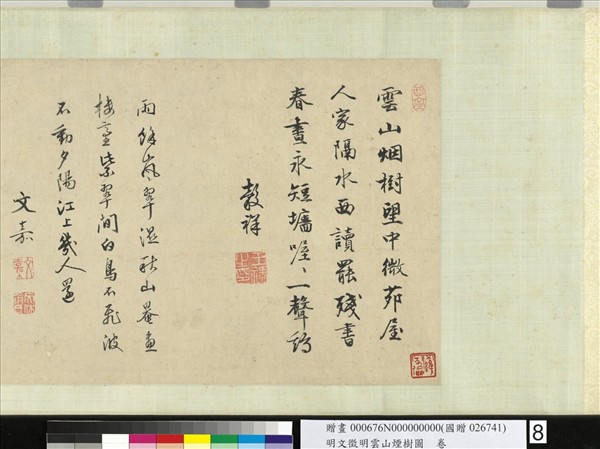 雲山烟樹望中微茆屋
人家隔水西讀罷殘書
春晝永短墻喔〻一聲鷄
穀祥
雨餘嵐翠溼
山
樓
紫翠間白鳥不飛波
不動夕陽江上幾人還
文嘉
贈畫 000676N000000000(國贈 026741)
明文徵明雲山煙樹圖 卷
8